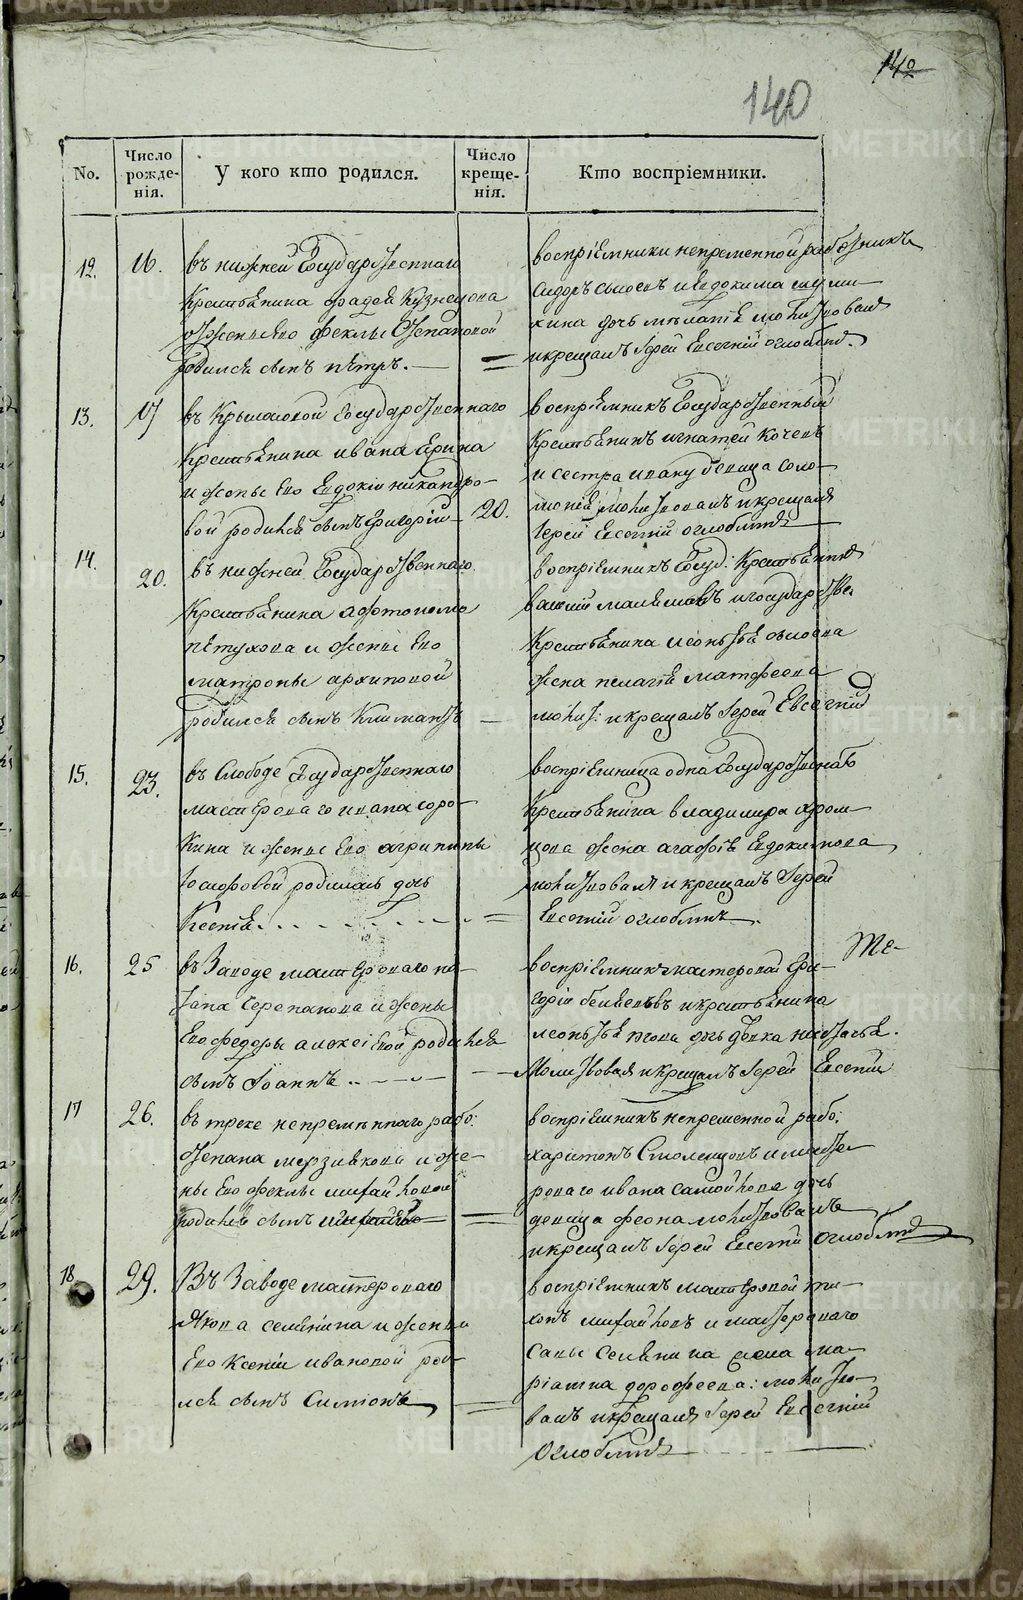 140
140
No.
Число рожде-нія.
У кого кто родился.
Число креще-нія.
Кто воспріемники.
12.
16.
въ нижней Государственнаго
Крестьянина Фадея Кузнецова
и жены Его Феклы Степановой
родился сынъ пѣтръ.
воспріемники непременной работникъ
сидоръ сысоевъ и евдокима
дочь меланіѣ молитвовалъ
и крещалъ Іерей Евсегній оглоблинъ.
13.
17
въ Государственнаго
Крестьянина ивана Ерина
и жены Его Евдокіи никандро-
вой родился сынъ григорій
20.
воспріѣмникъ Государственный
Крестьянинъ игнатей Кочевъ
и сестра ивану девица соло-
моніѣ молитвовалъ и крещалъ
Іерей Евсегній оглоблинъ
14.
20.
въ нижней Государственнаго
Крестьянина
пѣтухова и жены Его
матроны архиповой
родился сынъ Климантъ
воспріемникъ Госуд: Крестьянинъ
и государстве
Крестьянина леонтья сысоева
жена пелагія матфеева
молит: и крещалъ Іерей Евсегній
15.
23.
въ Слободе Государственнаго
мастероваго ивана соро-
кина и жены Его агрипины
Іосифовой родилась дочь
Ксенія
воспріемница одна Государственнаго
Крестьянина владимира хром-
цова жена агафія Евдокимова
молитвовалъ и крещалъ Іерей
Евсегній оглоблинъ.
16.
25
въ Заводе мастероваго по-
тапа черепанова и жены
Его федоры алексіевой родился
сынъ Іоаннъ
воспріемникъ мастеровой гри-
горій и крестьянина
леонтья дочь девка настасья.
Молитвовалъ и крещалъ Іерей Евсегній
17
26.
въ треке непремѣннаго рабо:
степана мерзлякова и же-
ны Его феклы михайловой
родился сынъ
воспріемникъ непременной рабо:
харитонъ Смоленцовъ и масте-
роваго ивана самойлова дочь
девица феона молитвовалъ
и крещалъ Іерей Евсегній оглоблинъ
18.
29.
Въ Заводе мастероваго
Якова селянина и жены
Его Ксеніи ивановой роди-
лся сынъ Симіонъ
воспріемникъ мастеровой ти-
хонъ михайловъ и мастероваго
Савы Селянина жена ма-
ріамна дорофеева: молитво-
валъ и крещалъ Іерей Евсегній
Оглоблинъ
METRIKI.GASO-URAL.RU